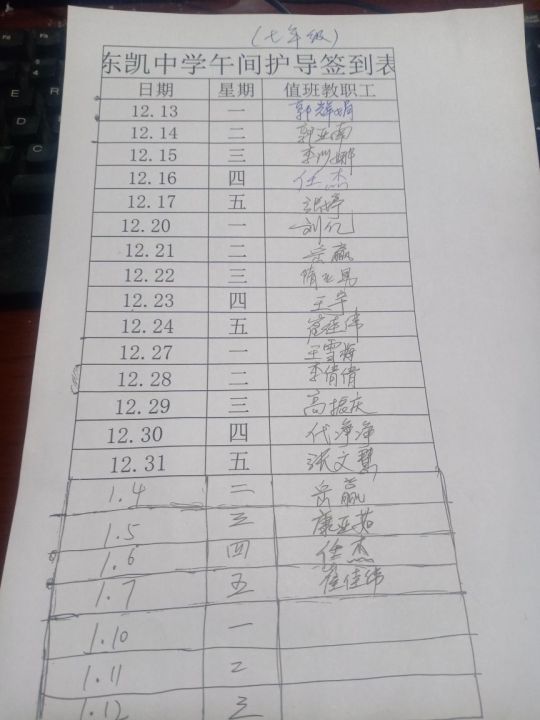 (七年级)
东凯中学午间护导签到表
日期 星期 值班教职工
12.13 一 郭辉娟
12.14 二 郭亚南
12.15 三 李 娜
12.16 四 任杰
12.17 五 张婷
12.20 一 刘亿
12.21 二 岳赢
12.22 三 隋
12.23 四 王宇
12.24 五 崔佳伟
12.27 一 王雪梅
12.28 二 李倩倩
12.29 三 高振庆
12.30 四 代净净
12.31 五 张文慧
1.4 二 岳赢
1.5 三 康亚茹
1.6 四 任杰
1.7 五 崔佳伟
1.10 一
1.11 二
1.12 三